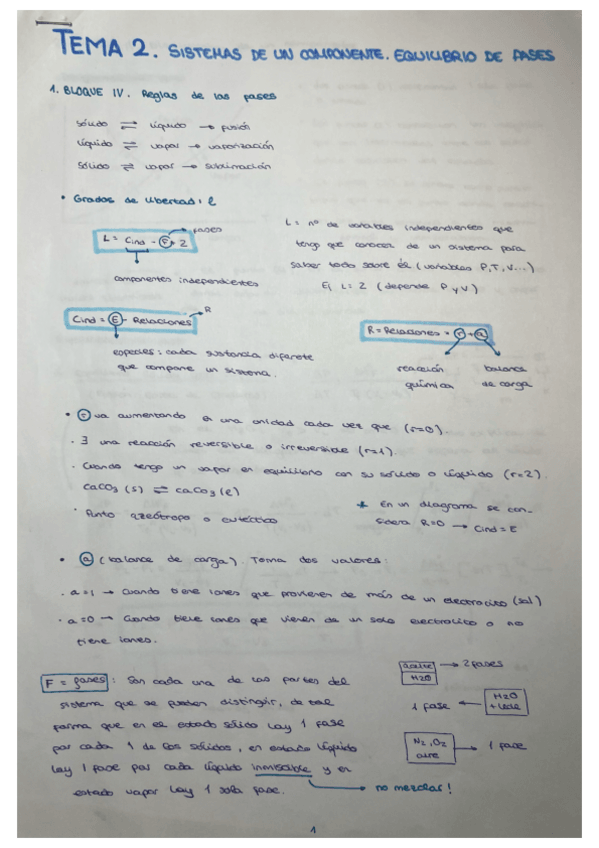 TEMA 2. SISTEMAS DE UN COMPONENTE. EQUILIBRIO DE FASES
1. BLOQUE IV. Reglas de las fases
sólido ⇌ líquido → fusión
líquido ⇌ vapor → vaporización
sólido ⇌ vapor → sublimación
• Grados de libertad: L
L = Cind - F + 2
fases
componentes independientes
L = nº de variables independientes que
tengo que conocer de un sistema para
saber todo sobre él (variables P, T, V...)
Ej L = 2 (depende P y V)
Cind = E - Relaciones
R
especies: cada sustancia diferente
que compone un sistema.
R = Relaciones = r + a
reacción química
balance de carga
• r va aumentando en una unidad cada vez que (r=0).
· ∃ una reacción reversible o irreversible (r=1).
· Cuando tengo un vapor en equilibrio con su sólido o líquido (r=2).
CaCO3 (s) ⇌ CaCO3 (l)
· Punto azeótropo o eutéctico
* En un diagrama se con-
sidera R=0 → Cind = E
• a (balance de carga). Toma dos valores:
· a=1 → Cuando tiene iones que provienen de más de un electrolito (sal)
· a=0 → Cuando tiene iones que vienen de un solo electrolito o no
tiene iones.
F = fases: Son cada una de las partes del
sistema que se pueden distinguir, de tal
forma que en el estado sólido hay 1 fase
por cada 1 de los sólidos, en estado líquido
hay 1 fase por cada líquido inmiscible y en
estado vapor hay 1 sola fase.
no mezclar!
aceite
H2O
→ 2 fases
1 fase ←
H2O
+ leche
N2, O2
aire
→ 1 fase
1